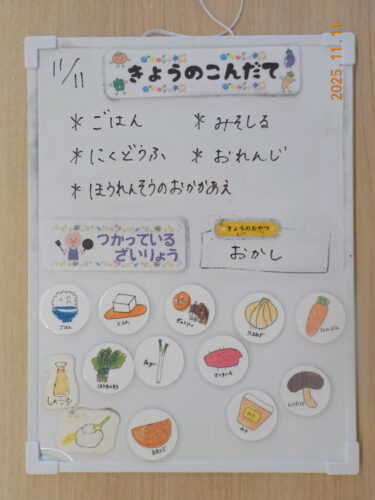 11/11
きょうのこんだて
＊ごはん ＊みそしる
＊にくどうふ ＊おれんじ
＊ほうれんそうのおかかあえ
つかっている
ざいりょう
きょうのおやつ
おかし
ごはん
とうふ
ぎゅうにく
たまねぎ
にんじん
ほうれんそう
ねぎ
さつまいも
しいたけ
しょうゆ
みそ
おれんじ
2025.11.11